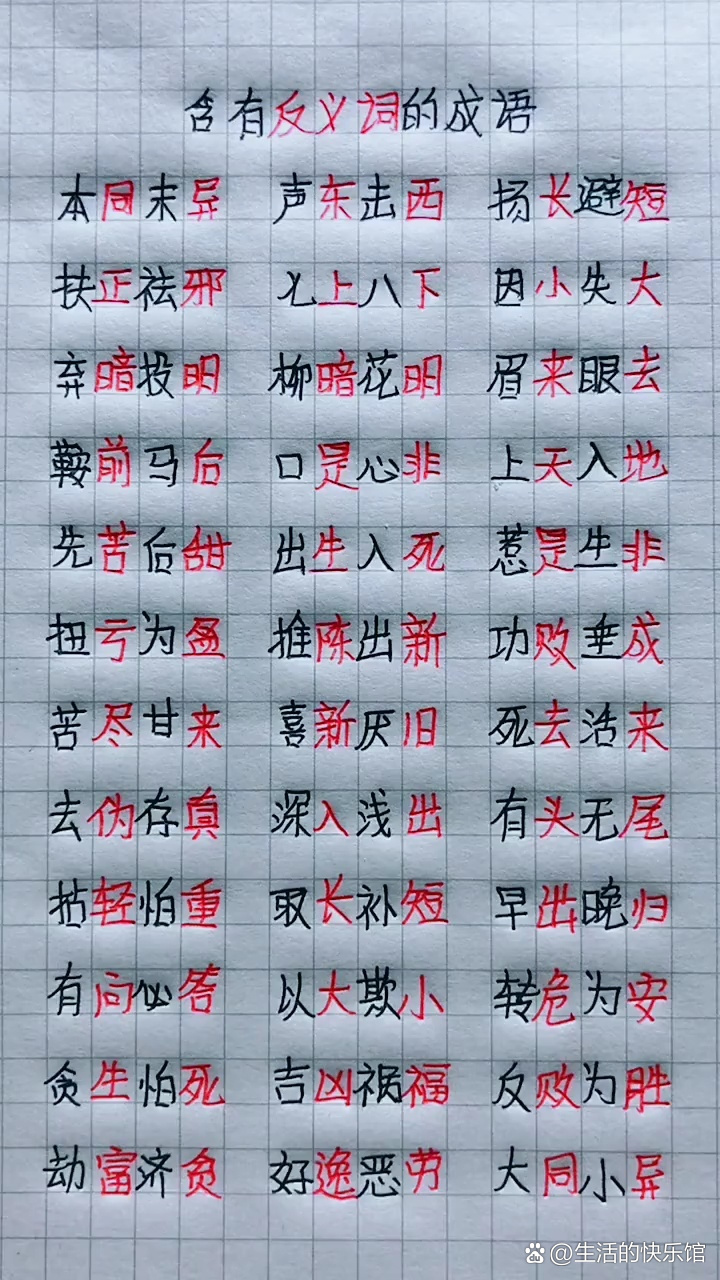 含有反义词的成语
本同末异 声东击西 扬长避短
扶正祛邪 七上八下 因小失大
弃暗投明 柳暗花明 眉来眼去
鞍前马后 口是心非 上天入地
先苦后甜 出生入死 惹是生非
扭亏为盈 推陈出新 功败垂成
苦尽甘来 喜新厌旧 死去活来
去伪存真 深入浅出 有头无尾
拈轻怕重 取长补短 早出晚归
有问必答 以大欺小 转危为安
贪生怕死 吉凶祸福 反败为胜
劫富济贫 好逸恶劳 大同小异
@生活的快乐馆